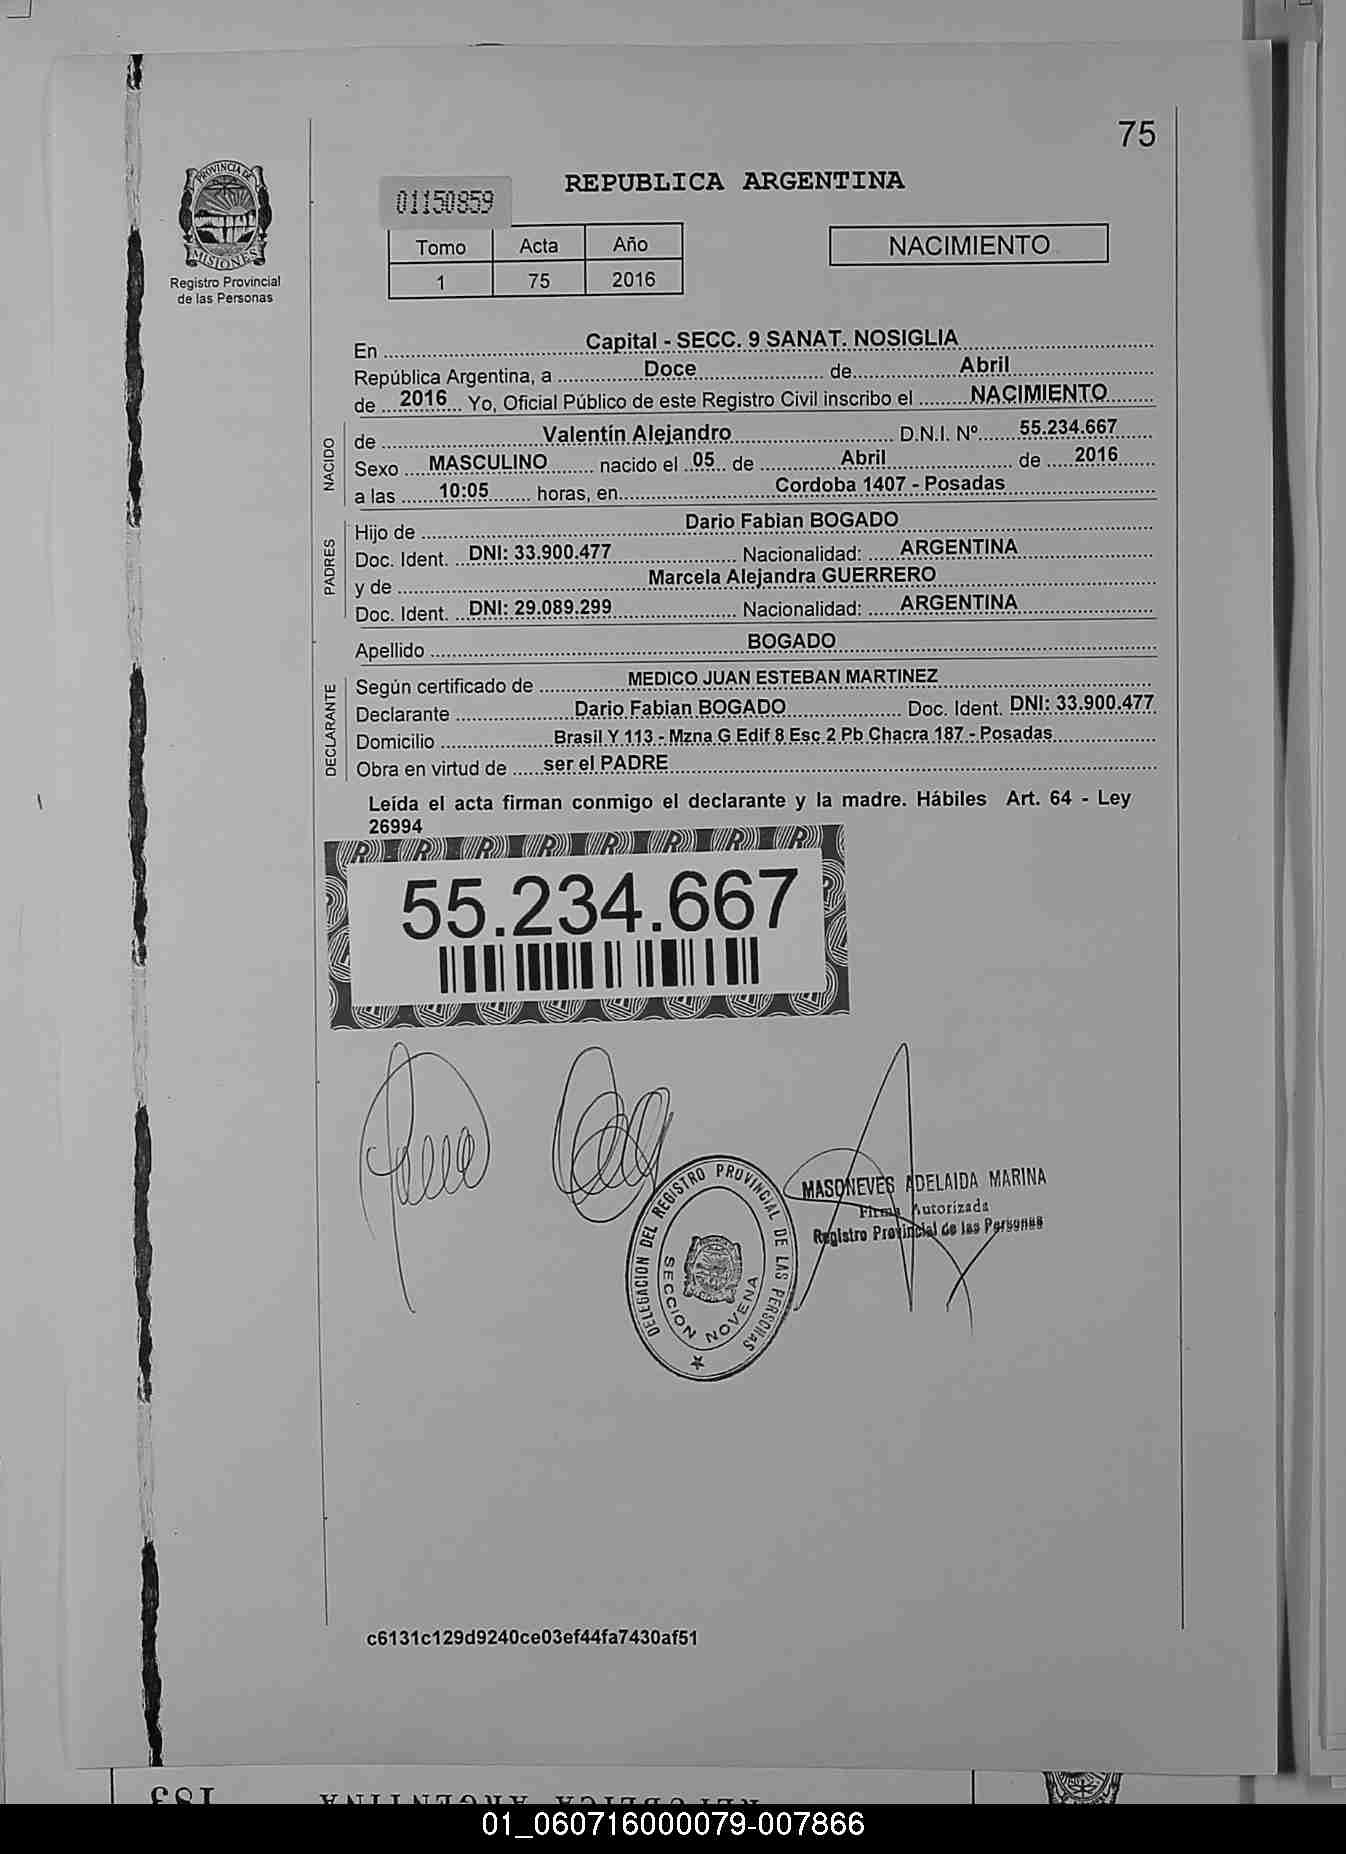 75
PROVINCIA DE
MISIONES
Registro Provincial
de las Personas
REPUBLICA ARGENTINA
01150859
Tomo Acta Año
1 75 2016
NACIMIENTO
En Capital - SECC. 9 SANAT. NOSIGLIA
República Argentina, a Doce de Abril
de 2016 Yo, Oficial Público de este Registro Civil inscribo el NACIMIENTO
NACIDO
de Valentín Alejandro D.N.I. Nº 55.234.667
Sexo MASCULINO nacido el 05 de Abril de 2016
a las 10:05 horas, en Cordoba 1407 - Posadas
PADRES
Hijo de Dario Fabian BOGADO
Doc. Ident. DNI: 33.900.477 Nacionalidad: ARGENTINA
y de Marcela Alejandra GUERRERO
Doc. Ident. DNI: 29.089.299 Nacionalidad: ARGENTINA
Apellido BOGADO
DECLARANTE
Según certificado de MEDICO JUAN ESTEBAN MARTINEZ
Declarante Dario Fabian BOGADO Doc. Ident. DNI: 33.900.477
Domicilio Brasil Y 113 - Mzna G Edif 8 Esc 2 Pb Chacra 187 - Posadas
Obra en virtud de ser el PADRE
Leída el acta firman conmigo el declarante y la madre. Hábiles Art. 64 - Ley
26994
55.234.667
DELEGACION DEL REGISTRO PROVINCIAL DE LAS PERSONAS
SECCION NOVENA
MASONEVES ADELAIDA MARINA
Firma Autorizada
Registro Provincial de las Personas
c6131c129d9240ce03ef44fa7430af51
183
REPUBLICA ARGENTINA
01_060716000079-007866